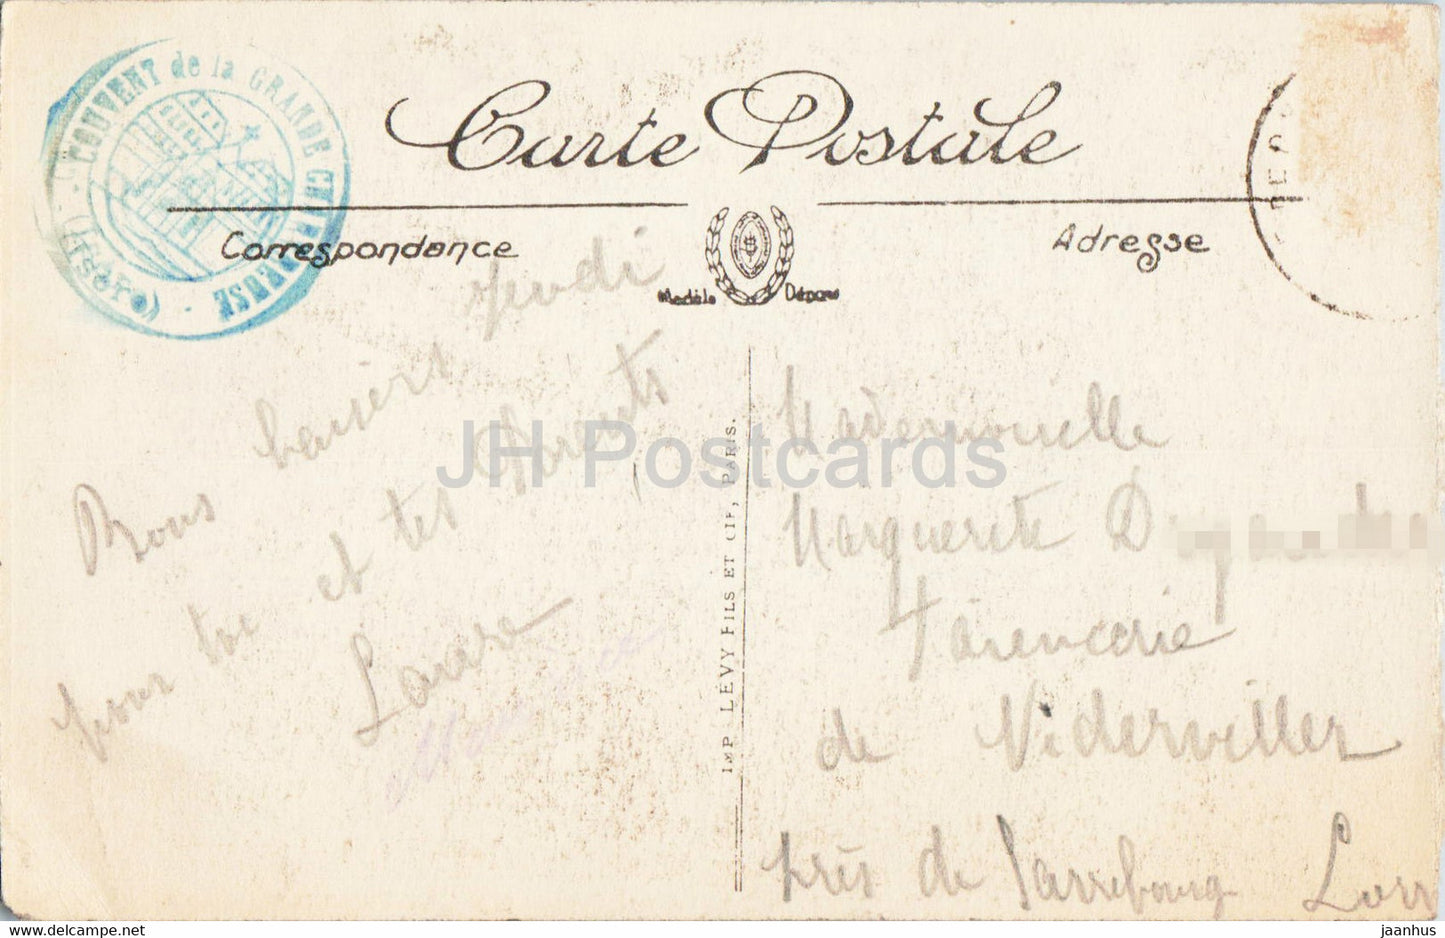 COUVENT de la GRANDE CHARTREUSE
(Isère)
Carte Postale
Correspondance
Adresse
Modèle Déposé
Jeudi
Bons baisers
pour toi et tes Parents
IMP. LÉVY FILS ET CIE, PARIS.
Mademoiselle
Marguerite D
Faïencerie
de Niderviller
près de Sarrebourg Lorr
JH Postcards
delcampe.net
jaanhus